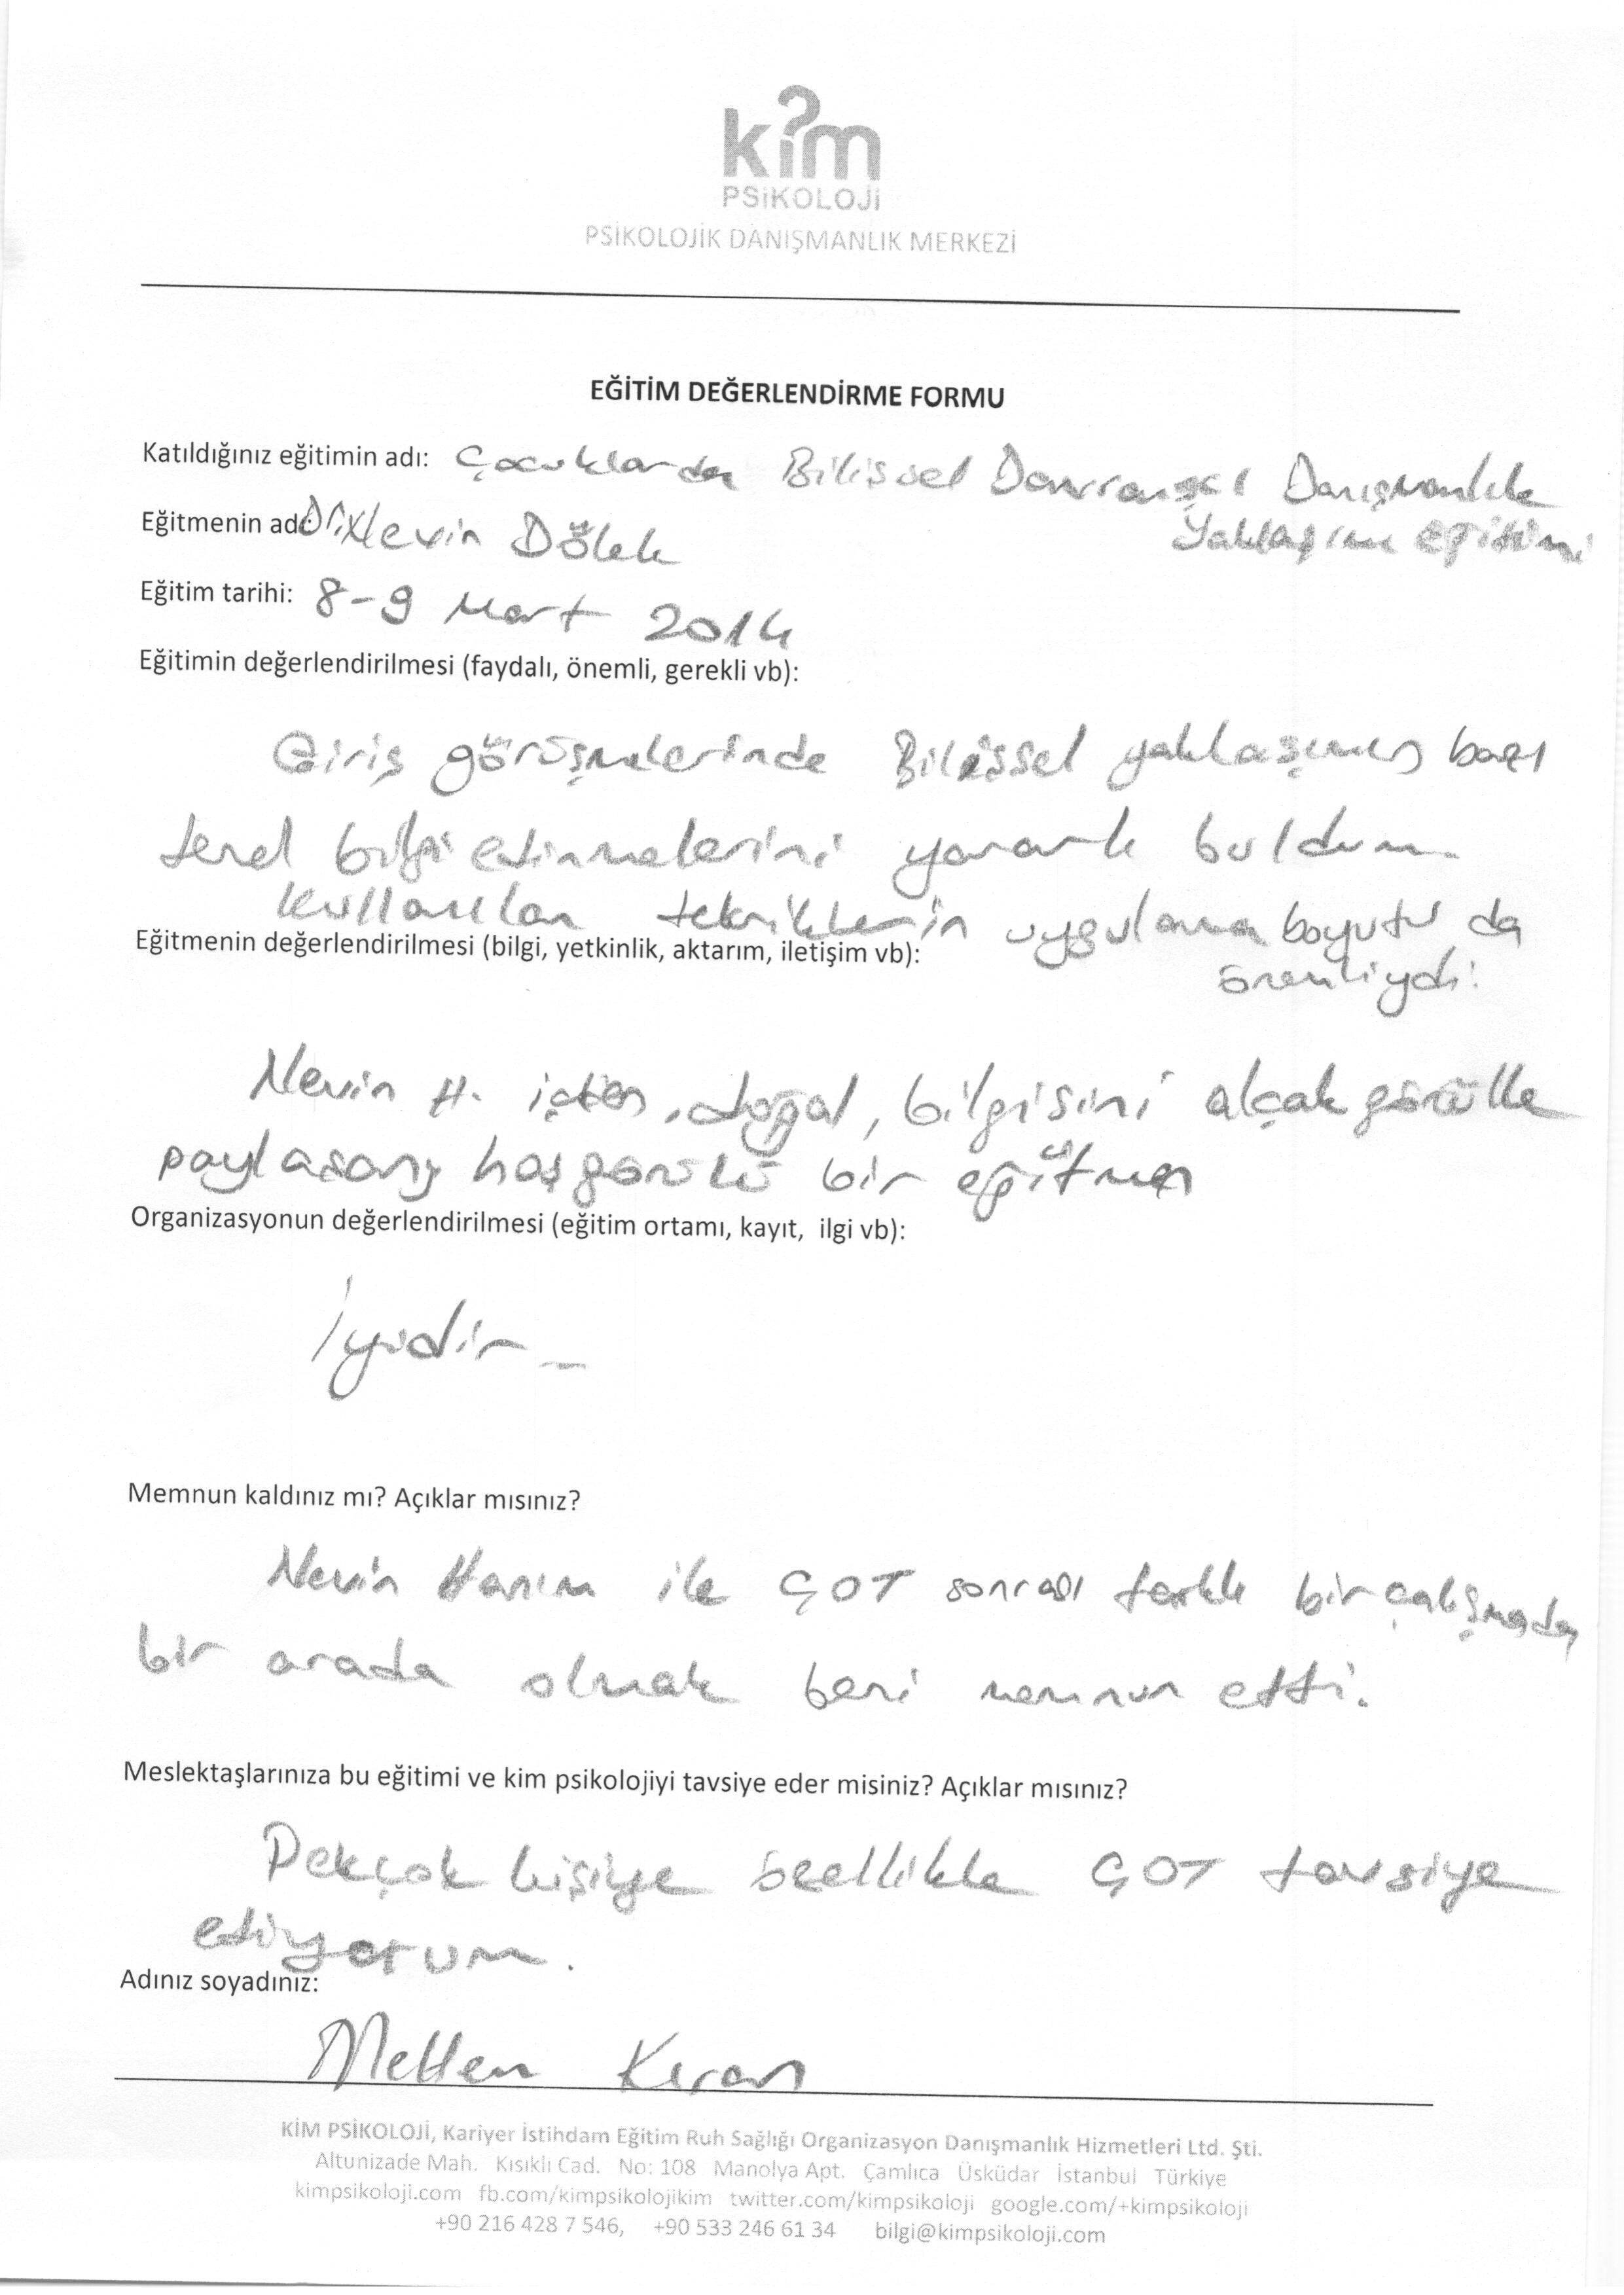 kim
PSiKOLOJi
PSİKOLOJİK DANIŞMANLIK MERKEZİ
EĞİTİM DEĞERLENDİRME FORMU
Katıldığınız eğitimin adı: Çocuklarda Bilişsel Davranışçı Danışmanlık
Yaklaşım Eğitimi
Eğitmenin adı: Nevin Dölek
Eğitim tarihi: 8-9 Mart 2014
Eğitimin değerlendirilmesi (faydalı, önemli, gerekli vb):
Giriş görüşmelerinde Bilişsel yaklaşımın bazı
temel bilgi edinmelerini yararlı buldum.
Kullanılan tekniklerin uygulama boyutu da
önemliydi.
Eğitmenin değerlendirilmesi (bilgi, yetkinlik, aktarım, iletişim vb):
Nevin H. içten, doğal, bilgisini alçak gönülle
paylaşan, hoşgörülü bir eğitmen
Organizasyonun değerlendirilmesi (eğitim ortamı, kayıt, ilgi vb):
İyidir
Memnun kaldınız mı? Açıklar mısınız?
Nevin Hanım ile ÇOT sonrası farklı bir çalışmada
bir arada olmak beni memnun etti.
Meslektaşlarınıza bu eğitimi ve kim psikolojiyi tavsiye eder misiniz? Açıklar mısınız?
Pekçok kişiye özellikle ÇOT tavsiye
ediyorum.
Adınız soyadınız:
Kıran
KİM PSİKOLOJİ, Kariyer İstihdam Eğitim Ruh Sağlığı Organizasyon Danışmanlık Hizmetleri Ltd. Şti.
Altunizade Mah. Kısıklı Cad. No: 108 Manolya Apt. Çamlıca Üsküdar İstanbul Türkiye
kimpsikoloji.com fb.com/kimpsikolojikim twitter.com/kimpsikoloji google.com/+kimpsikoloji
+90 216 428 7 546, +90 533 246 61 34 bilgi@kimpsikoloji.com